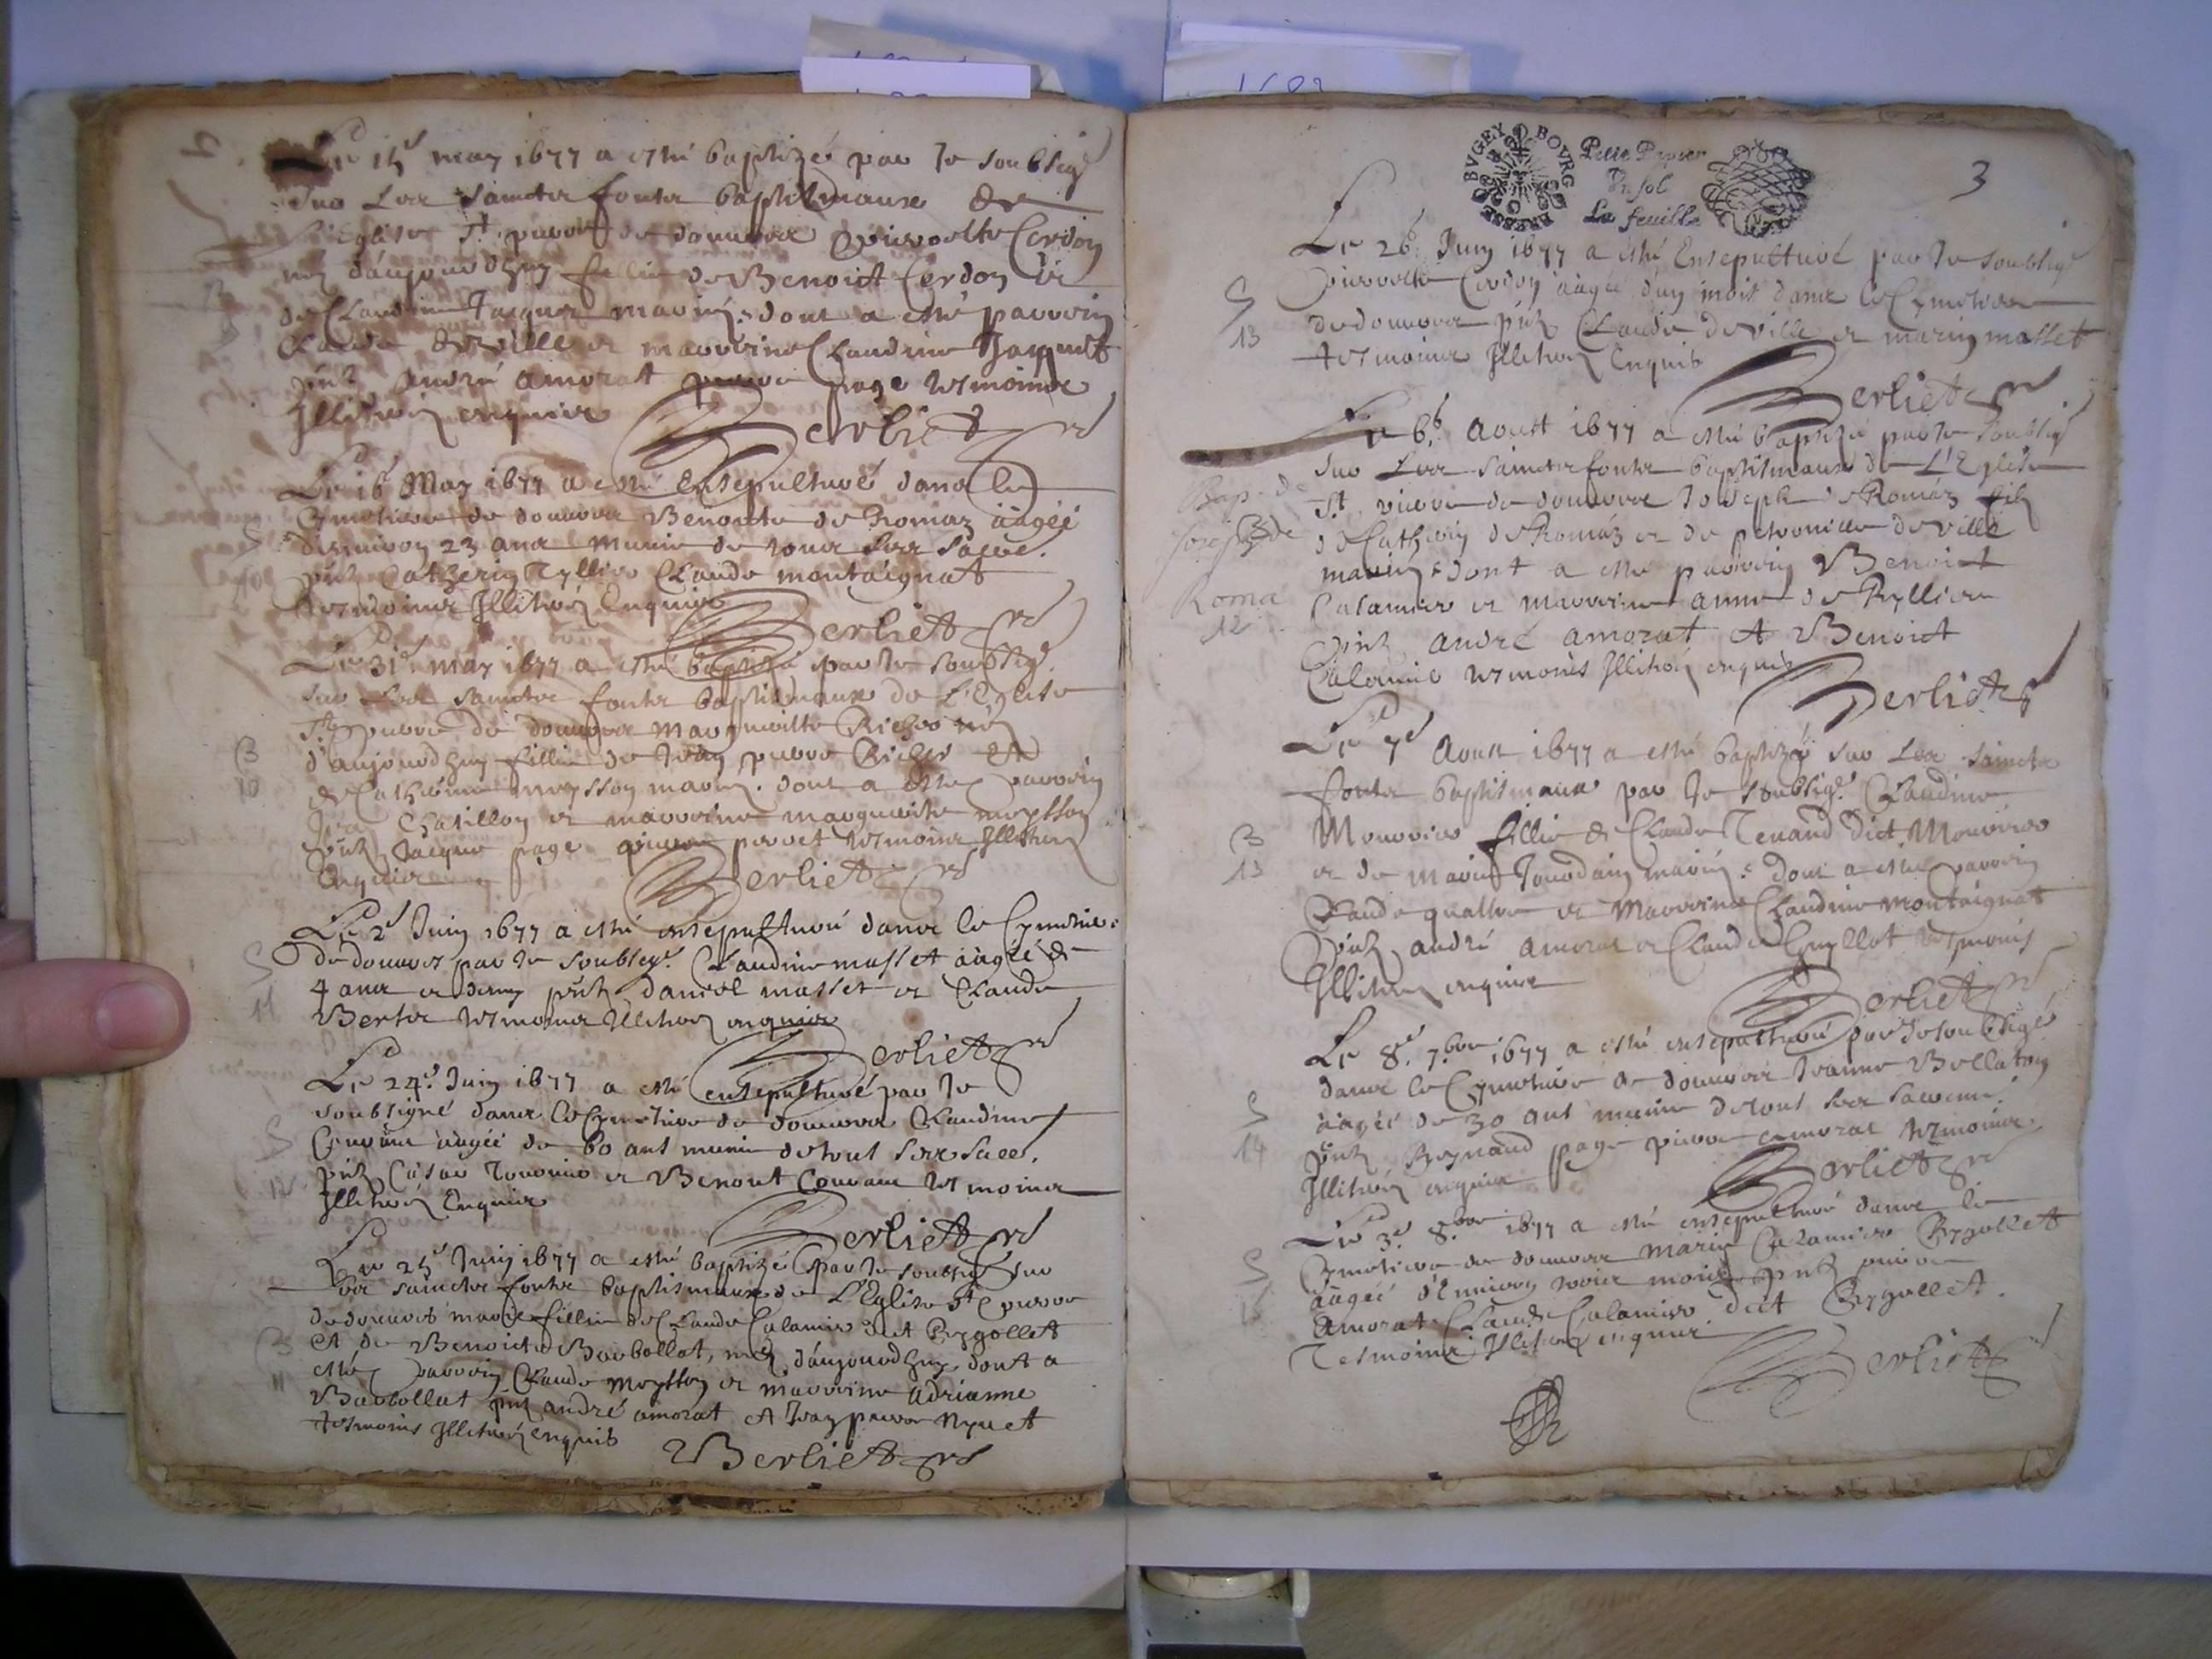 Le 15e may 1677 a esté baptizé par Je soubsig.
sur Les sainctes fonts baptismaux de
L'Eglise St pierre de douvres pierrette Cerdon
née d'aujourd'huy fillie de Benoict Cerdon et
de Claudine Jacques mariés. dont a esté parrein
Claude deville et marreine Claudine
pnts andré amorat pierre page tesmoins
Illiterés enquis Berliet
Le 16e May 1677 a esté Ensepulturé dans le
Cymetiere de douvres Benoiste de Romaz aagée
d'environ 23 ans munie de tous ses sacre.
pnts Catherin Tyllier Claude montaignat
tesmoins Illiterés Enquis
Berliet
Le 31e may 1677 a esté baptizé par Je soubsig.
sur Les sainctes fonts baptismaux de L'Eglise
St pierre de douvres Marguerite Richer née
d'aujourd'huy fillie de Jean pierre Richer et
de Catherine meysson mariés. dont a esté parrein
Jean Chatillon et marreine marguerite meysson
pnts Jacques page pierre pervet tesmoins Illiterés
Enquis Berliet
Le 2e Juin 1677 a esté ensepulturé dans le Cymetiere
de douvres par Je soubsig. Claudine masset aagée de
4 ans et demy pnts daniel masset et Claude
Berter tesmoins Illiterés enquis
Berliet
Le 24e Juin 1677 a esté ensepulturé par Je
soubsigné dans le Cymetiere de douvres Claudine
aagée de 60 ans munie de tous ses sacre.
pnts Cesar et Benoit tesmoins
Illiterés Enquis
Berliet
Le 25e Juin 1677 a esté baptizé par Je soubsig. sur
les sainctes fonts baptismaux de L'Eglise St pierre
de douvres marie fillie de Claude Calamier dict Brygollet
et de Benoiste Barbollat, née d'aujourd'huy dont a
esté parrein Claude meysson et marreine adrianne
Barbollat pnts andré amorat et Jean pierre
tesmoins Illiterés enquis Berliet
BUGEY BOURG BRESSE
Petit Papier
Un sol
La feuille
3
Le 26e Juin 1677 a esté Ensepulturé par Je soubsig.
pierrette Cerdon aagée d'un mois dans le Cymetiere
de douvres pnts Claude deville et marin masset
tesmoins Illiterés Enquis
Berliet
Le 6e Aoust 1677 a esté baptizé par Je soubsig.
sur Les sainctes fonts baptismaux de L'Eglise
St pierre de douvres Joseph de Romaz fils
de Catherin de Romaz et de pernonette deville
mariés dont a esté parrein Benoict
Calamier et marreine anne de Ryllier
pnts andré amorat et Benoict
Calamier tesmoins Illiterés enquis
Berliet
Le 7e Aoust 1677 a esté baptizé sur Les saincts
fonts baptismaux par Je soubsig. Claudine
Mourrier fillie de Claude Tenand dict Mourrier
et de marie Jourdain mariés. dont a esté parrein
Claude quattre et Marreine Claudine montaignat
pnts andré amorat et Claude Guyllot tesmoins
Illiterés enquis
Berliet
Le 8e 7bre 1677 a esté ensepulturé par Je soubsigné
dans le Cymetiere de douvres Jeanne Bellaton
aagée de 30 ans munie de tous ses sacrem.
pnts Reynaud page pierre amorat tesmoins
Illiterés enquis Berliet
Le 3e 8bre 1677 a esté ensepulturé dans le
Cymetiere de douvres Marie Calamier Brygollet
aagée d'Environ trois mois pnts pierre
Amorat Claude Calamier dict Brygollet
Tesmoins Illiterés enquis
Berliet
S
10
B
10
S
11
S
12
B
11
S
13
Bap. de
Joseph de
Roma
12
B
13
S
14
S
15